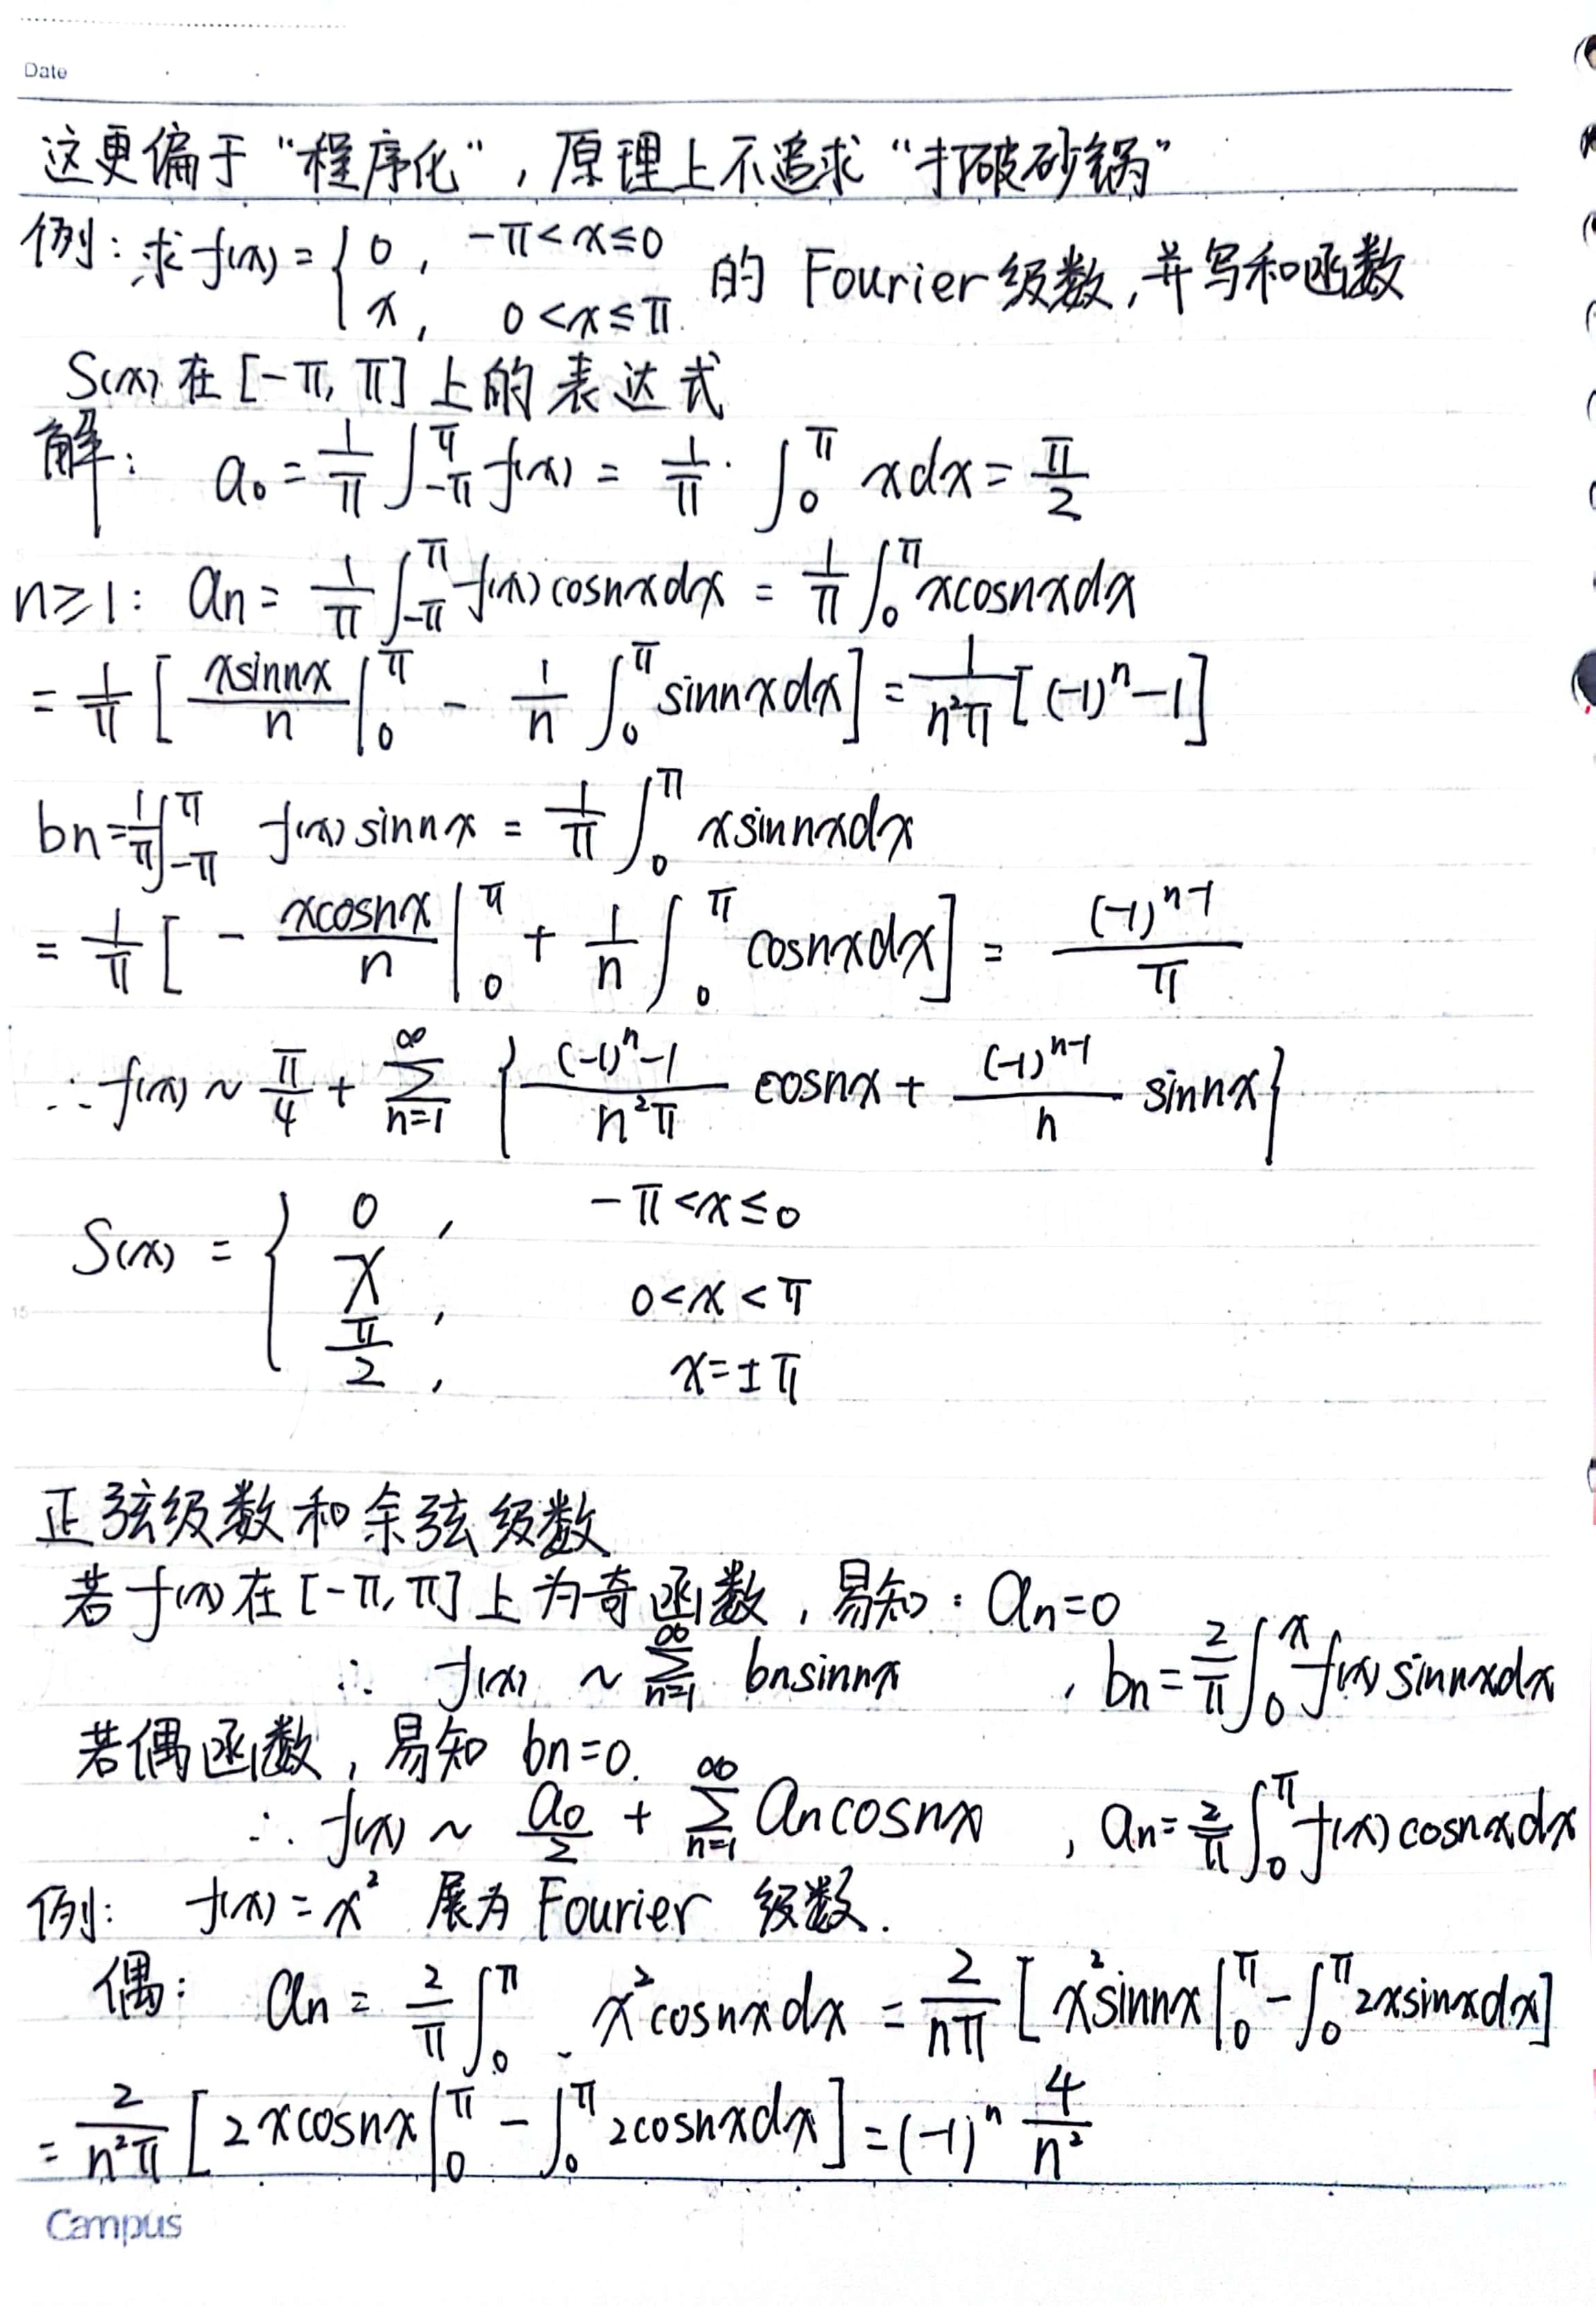 Date
这更偏于“程序化”，原理上不追求“打破砂锅”
例：求 f(x) = { 0 , -π < x ≤ 0
x , 0 < x ≤ π. 的 Fourier 级数，并写和函数
S(x) 在 [-π, π] 上的表达式
解： a₀ = 1/π ∫_{-π}^{π} f(x) = 1/π · ∫_0^π x dx = π/2
n ≥ 1: aₙ = 1/π ∫_{-π}^{π} f(x) cosnx dx = 1/π ∫_0^π x cosnx dx
= 1/π [ x sinnx / n |_0^π - 1/n ∫_0^π sinnx dx ] = 1/(n²π) [ (-1)ⁿ - 1 ]
bn = 1/π ∫_{-π}^{π} f(x) sinnx = 1/π ∫_0^π x sinnx dx
= 1/π [ - x cosnx / n |_0^π + 1/n ∫_0^π cosnx dx ] = (-1)^{n-1} / π
∴ f(x) ~ π/4 + ∑_{n=1}^∞ { ((-1)ⁿ - 1)/(n²π) cosnx + (-1)^{n-1}/n sinnx }
S(x) = { 0 , -π < x ≤ 0
x , 0 < x < π
π/2 , x = ± π
15
正弦级数和余弦级数
若 f(x) 在 [-π, π] 上为奇函数，易知：aₙ = 0
∴ f(x) ~ ∑_{n=1}^∞ bn sinnx , bn = 2/π ∫_0^π f(x) sinnx dx
若偶函数，易知 bn = 0.
∴ f(x) ~ a₀/2 + ∑_{n=1}^∞ aₙ cosnx , aₙ = 2/π ∫_0^π f(x) cosnx dx
例: f(x) = x² 展为 Fourier 级数.
偶： aₙ = 2/π ∫_0^π x² cosnx dx = 2/(nπ) [ x² sinnx |_0^π - ∫_0^π 2x sinnx dx ]
= 2/(n²π) [ 2x cosnx |_0^π - ∫_0^π 2cosnx dx ] = (-1)ⁿ 4/n²
Campus